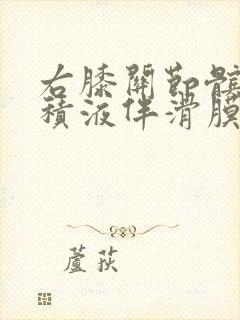 右膝關節髕
積液伴滑膜
蘆荻